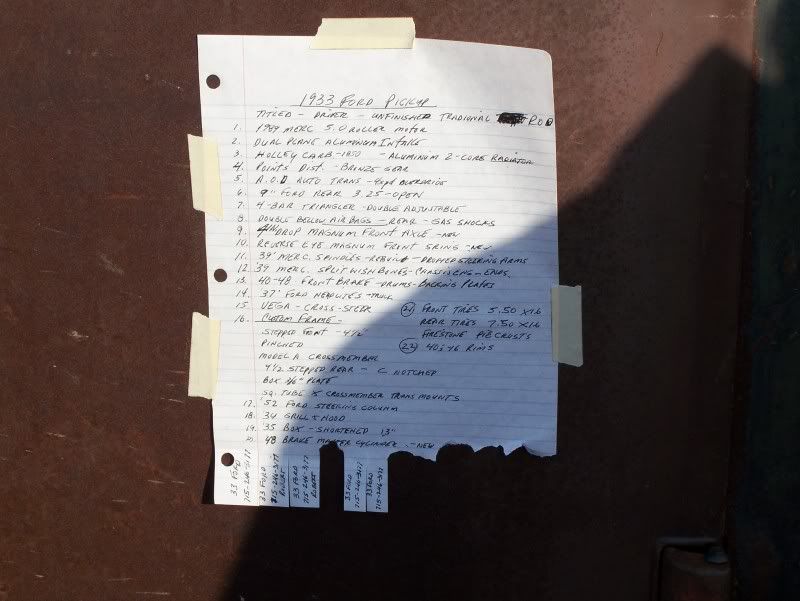 1933 FORD PICKUP
TITLED - DRIVER - UNFINISHED TRADIONAL ROD
1. 1989 MERC 5.0 ROLLER MOTOR
2. DUAL PLANE ALUMINUM INTAKE
3. HOLLEY CARB - 1850 - ALUMINUM 2-CORE RADIATOR
4. POINTS DIST. - BRONZE GEAR
5. A.O.D AUTO TRANS - 4 spd OVERDRIVE
6. 9" FORD REAR 3.25 - OPEN
7. 4-BAR TRIANGLER - DOUBLE ADJUSTABLE
8. DOUBLE BELLOW AIR BAGS - REAR - GAS SHOCKS
9. 4" DROP MAGNUM FRONT AXLE - NEW
10. REVERSE EYE MAGNUM FRONT SRING - NEW
11. 39' MERC. SPINDLES - REBUILT - DROPPED STEERING ARMS
12. '39 MERC. SPLIT WISHBONES - ENDS.
13. 40-48 FRONT BRAKE - DRUMS - BACKING PLATES
14. 37' FORD HEADLITES -
15. VEGA - CROSS - STEER
16. CUSTOM FRAME -
STEPPED FRONT - 4 1/2"
PINCHED
MODEL A CROSSMEMBER
4 1/2 STEPPED REAR - C NOTCHED
BOX 3/16" PLATE
SQ. TUBE X CROSSMEMBER TRANS MOUNTS
17. '52 FORD STEERING COLUMN
18. 34 GRILL & HOOD
19. '35 BOX - SHORTENED 13"
48 BRAKE MASTER CYLINDER - NEW
21 FRONT TIRES 5.50 X 16
REAR TIRES 7.50 X 16
FIRESTONE PIE CRUSTS
22 40s 16 RIMS
33 FORD
715-246-3177
33 FORD
715-246-3177
ROBERT
33 FORD
715 246-3177
ROBERT
33 FORD
715-246-3177
33 FORD
715-246-3177